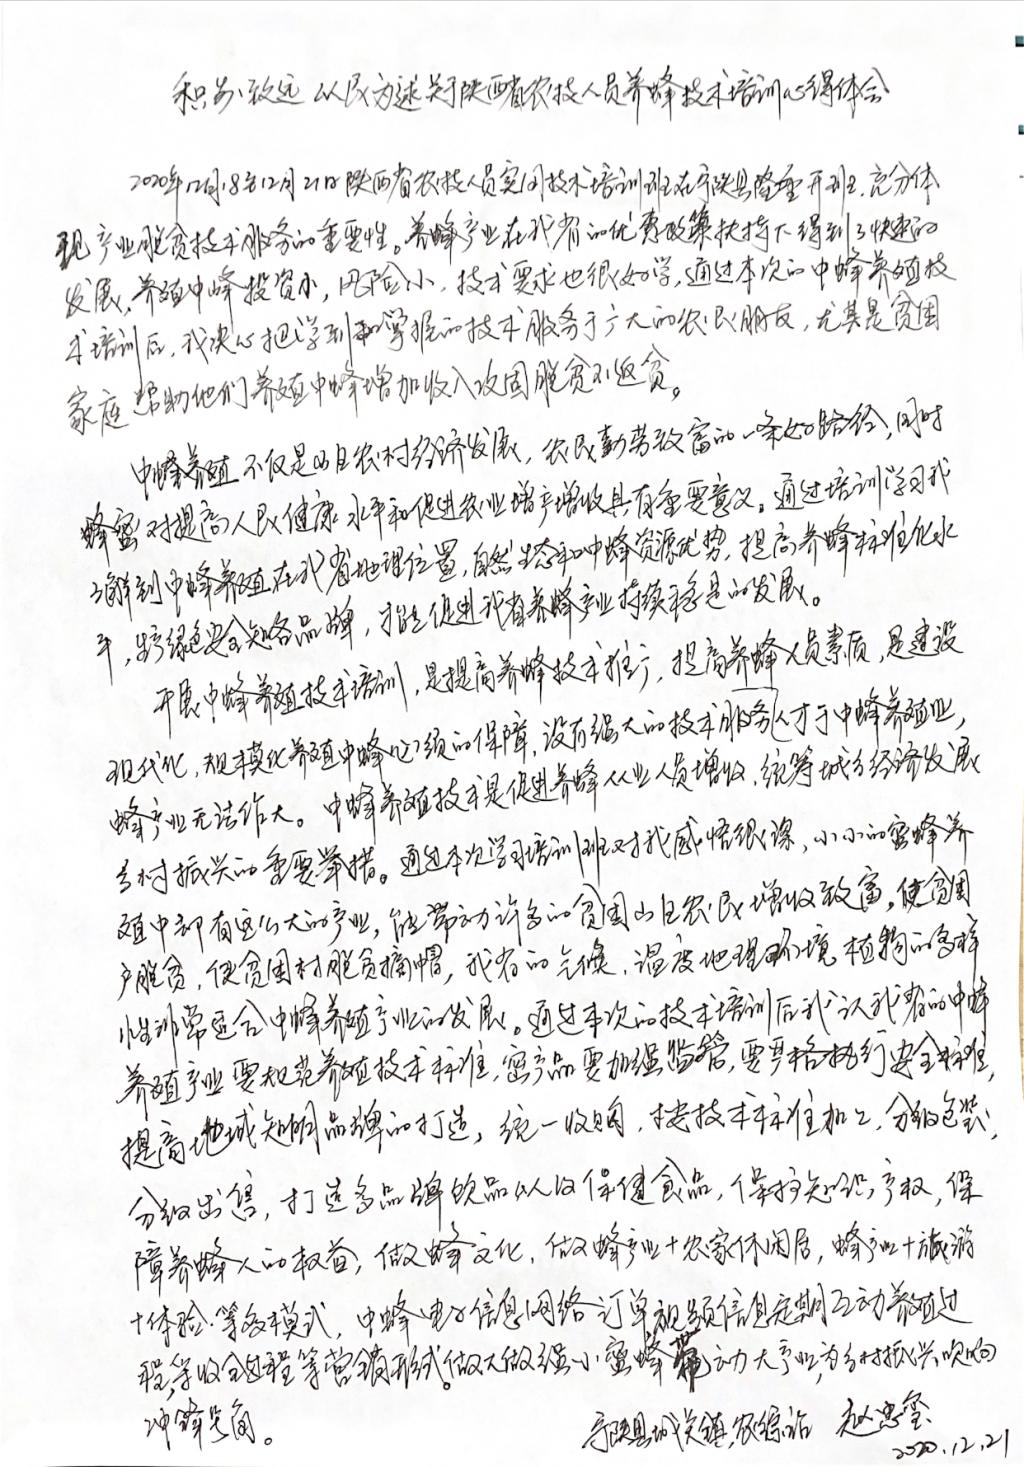 积劳致远 以民为述关于陕西省农技人员养蜂技术培训心得体会
2020年12月18至12月21日陕西省农技人员实用技术培训班在宁陕县隆重开班.充分体
现产业脱贫技术服务的重要性。养蜂产业在我省的优惠政策扶持下得到了快速的
发展,养殖中蜂投资小,风险小,技术要求也很好学,通过本次的中蜂养殖技
术培训后,我决心把学到和掌握的技术服务于广大的农民朋友,尤其是贫困
家庭帮助他们养殖中蜂增加收入攻固脱贫不返贫。
中蜂养殖不仅是山区农村经济发展,农民勤劳致富的一条好路径,同时
蜂蜜对提高人民健康水平和促进农业增产增收具有重要意义。通过培训学习我
了解到中蜂养殖在我省地理位置,自然生态和中蜂资源优势,提高养蜂标准化水
平,生产绿色安全知名品牌,才能促进我省养蜂产业持续稳定的发展。
开展中蜂养殖技术培训,是提高养蜂技术推广,提高养蜂人员素质,是建设
现代化,规模化养殖中蜂必须的保障,没有强大的技术服务人才于中蜂养殖业,
蜂产业无法作大。中蜂养殖技术是促进养蜂从业人员增收,统筹城乡经济发展
乡村振兴的重要举措。通过本次学习培训班对我感悟很深,小小的蜜蜂养
殖中却有这么大的产业,能带动许多的贫困山区农民增收致富,使贫困
户脱贫,使贫困村脱贫摘帽,我省的气候,温度地理环境植物的多样
性非常适合中蜂养殖产业的发展。通过本次的技术培训后我认我省的中蜂
养殖产业要规范养殖技术标准,蜜产品要加强监管,要严格执行安全标准,
提高地域知明品牌的打造,统一收购,按技术标准加工,分级包装,
分级出售,打造多品牌饮品以及保健食品,保护知识产权,保
障养蜂人的权益,做蜂文化,做蜂产业+农家休闲居,蜂产业+旅游
+体验.等多模式,中蜂电子信息网络订单视频信息定期互动养殖过
程,学收全过程等营销形式。做大做强小蜜蜂带动大产业,为乡村振兴吹响
冲锋号角。
宁陕县城关镇农综站 赵忠玺
2020.12.21